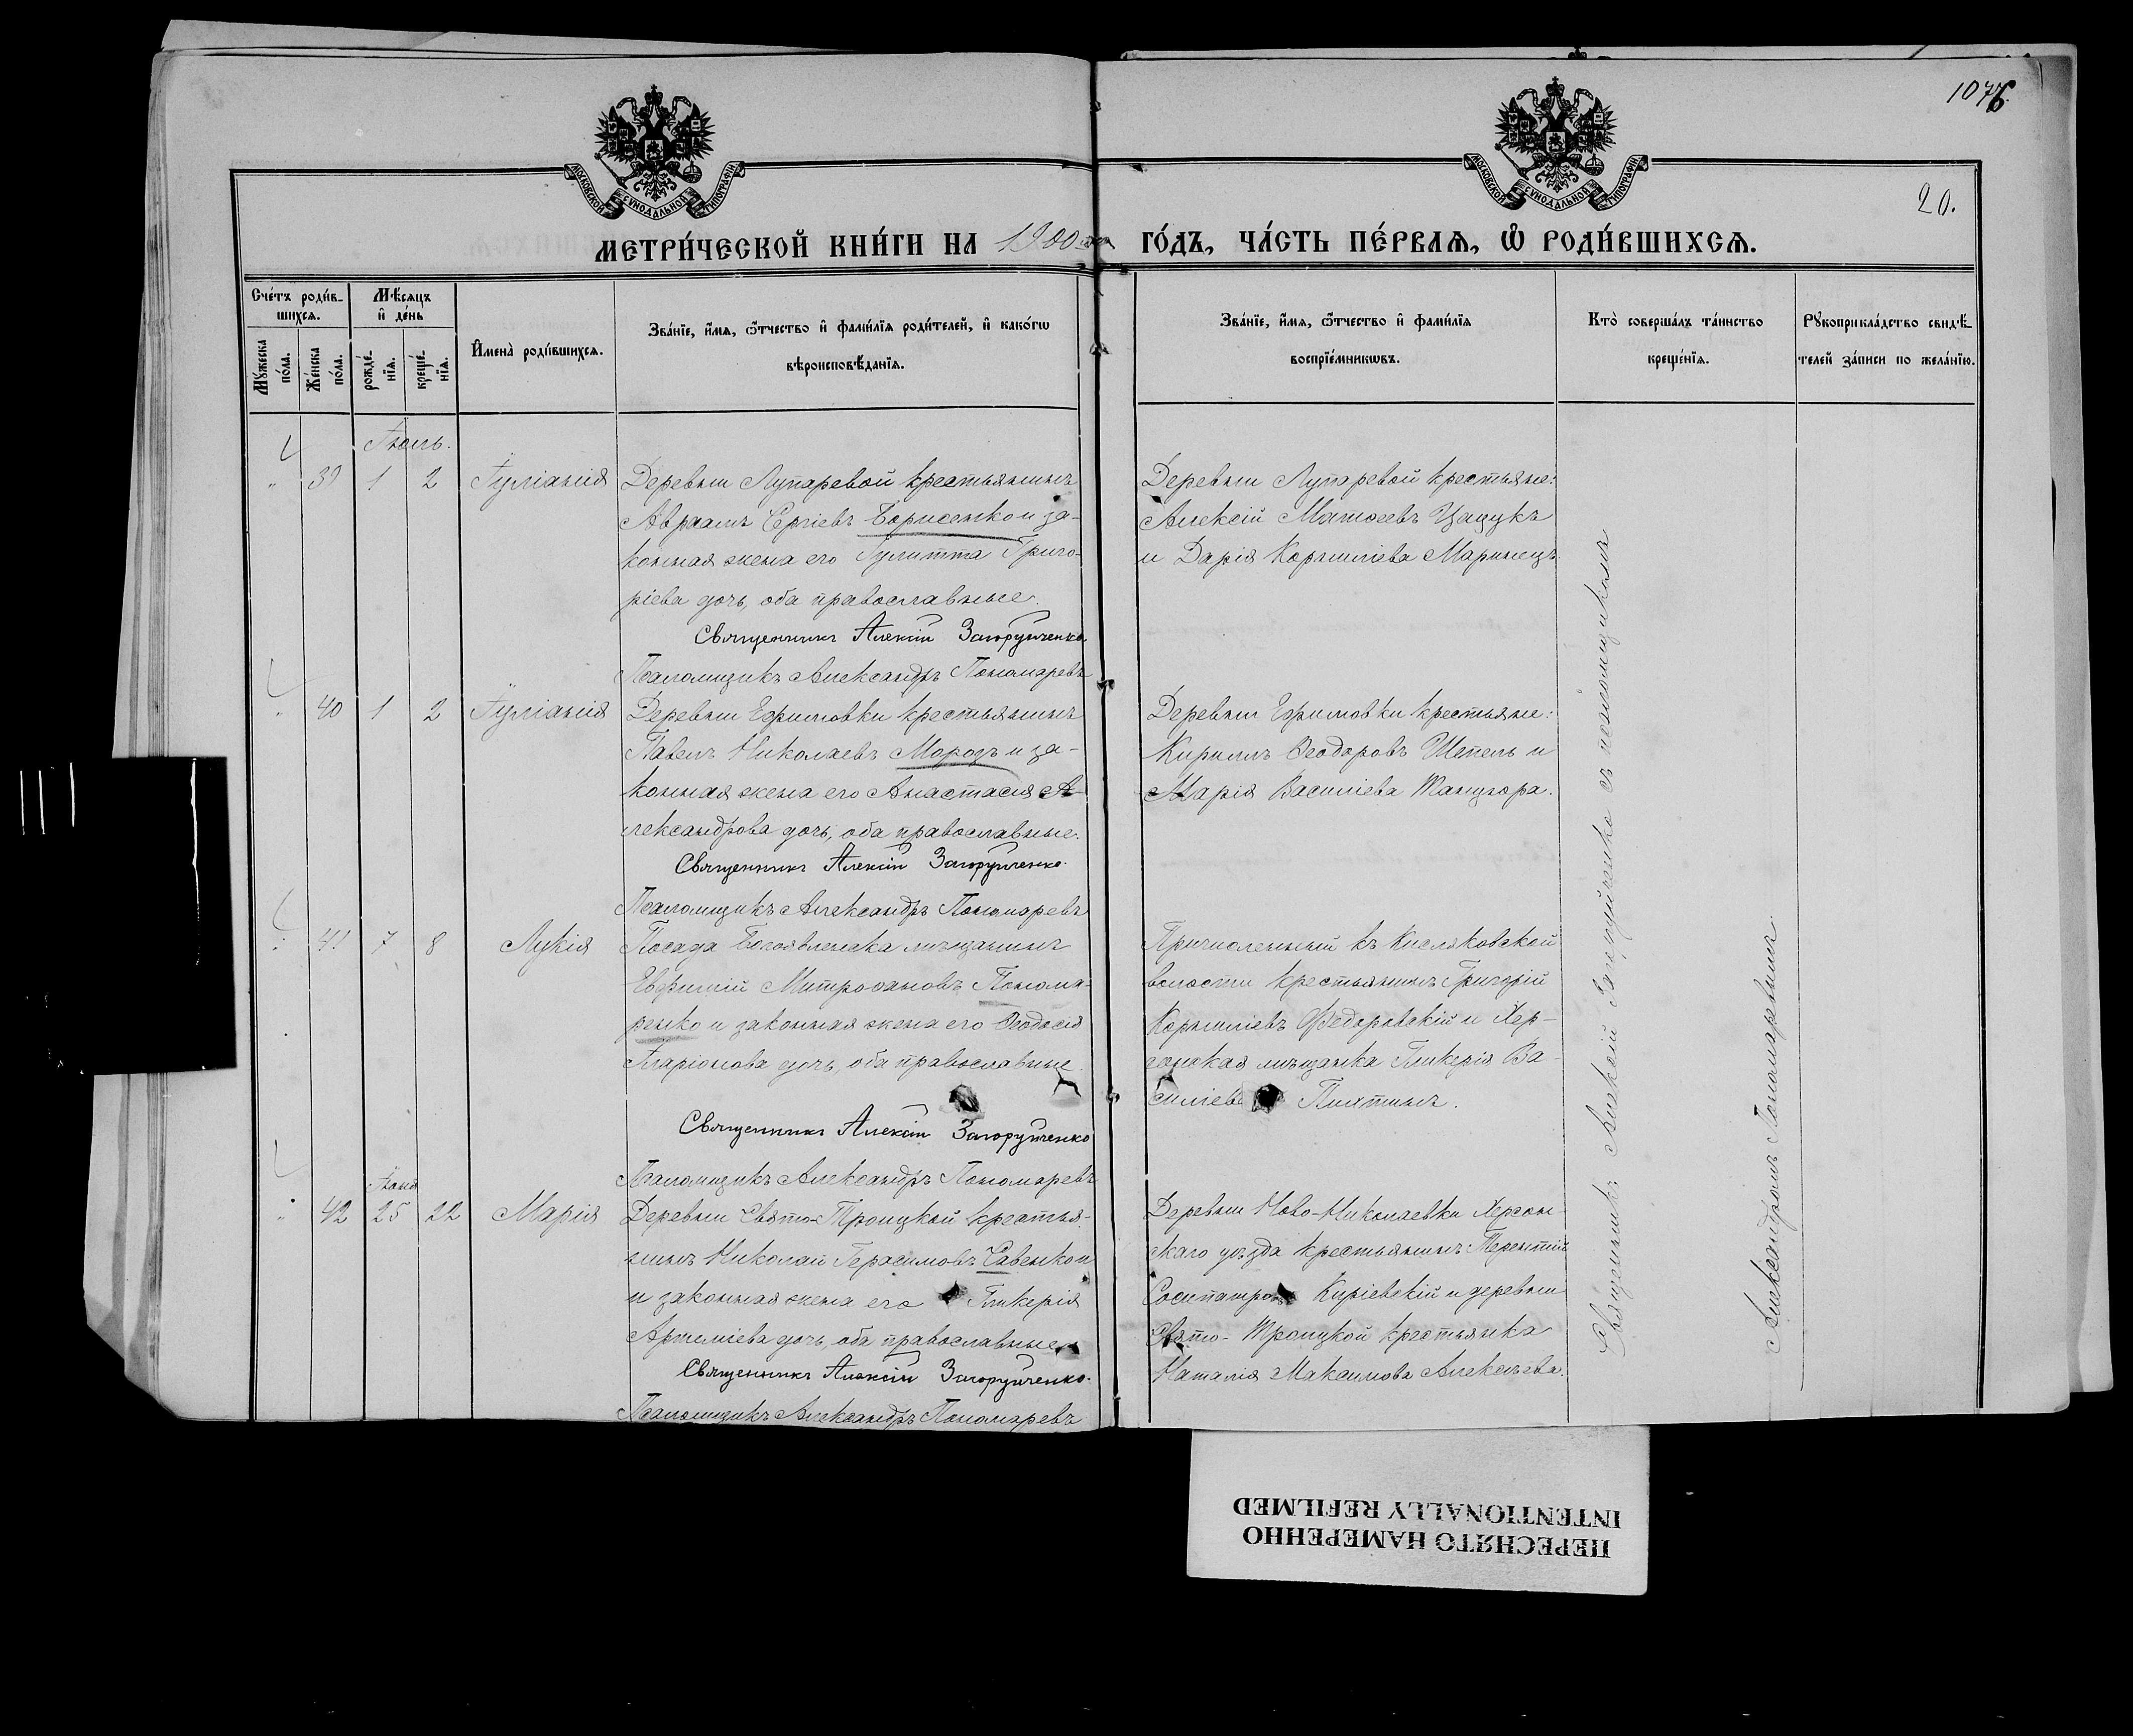 1076.
20.
МОСКОВСКОЙ СѴНОДАЛЬНОЙ ТИПОГРАФІИ
МОСКОВСКОЙ СѴНОДАЛЬНОЙ ТИПОГРАФІИ
МЕТРИ́ЧЕСКОЙ КНИ́ГИ НА 1900 ГО́ДЪ, ЧА́СТЬ ПЕ́РВАѦ, Ѽ РОДИ́ВШИХСѦ.
Сче́тъ роди́в-
шихсѧ.
Мѣ́сѧцъ
и҆ де́нь
Му́жеска
по́ла.
Же́нска
по́ла.
рожде́-
нїѧ.
креще́-
нїѧ.
И҆мена̀ роди́вшихсѧ.
Зва́нїе, и҆́мѧ, ѻ҆́тчество и҆ фами́лїѧ роди́телей, и҆ како́гѡ
вѣроисповѣ́данїѧ.
Зва́нїе, и҆́мѧ, ѻ҆́тчество и҆ фами́лїѧ
воспрїе́мникѡвъ.
Кто̀ соверша́лъ та́инство
креще́нїѧ.
Рꙋкоприкла́дство свидѣ́-
телей за́писи по жела́нїю.
Іюль.
" 39 1 2 Іуліанія
Деревни Лупаревой крестьянинъ
Авраамъ Сергіевъ Борисенко и за-
конная жена его Іулитта Григо-
ріева дочь, оба православные.
Священникъ Алексій
Псаломщикъ Александръ Пономаревъ
Деревни Лупаревой крестьяне:
Алексій Матѳеевъ Цацукъ
и Дарія Корниліева Маринецъ.
" 40 1 2 Іуліанія
Деревни Ефимовки крестьянинъ
Павелъ Николаевъ Морозъ и за-
конная жена его Анастасія А-
лександрова дочь, оба православные.
Священникъ Алексій
Псаломщикъ Александръ Пономаревъ
Деревни Ефимовки крестьяне:
Кириллъ Ѳеодоровъ Шепель и
Марія Василіева Танцюра.
" 41 7 8 Лукія
Посада Богоявленска мѣщанинъ
Евфимій Митрофановъ Понома-
ренко и законная жена его Ѳеодосія
Иларіонова дочь, оба православные.
Священникъ Алексій
Псаломщикъ Александръ Пономаревъ
Причисленный къ Кисляковской
волости крестьянинъ Григорій
Корниліевъ Федоровскій и Хер-
сонская мѣщанка Гликерія Ва-
силіева
Іюня
" 42 25 22 Марія
Деревни Свято-Троицкой крестья-
нинъ Николай Герасимовъ Савенко и
и законная жена его Гликерія
Артеміева дочь, оба православные.
Священникъ Алексій
Псаломщикъ Александръ Пономаревъ
Деревни Ново-Николаевки Херсон-
скаго уѣзда крестьянинъ Терентій
Сосипатровъ Куріевскій и деревни
Свято-Троицкой крестьянка
Наталія Максимова Алексѣева.
Священникъ Алексій съ псаломщикомъ
Александромъ Пономаревымъ.
ПЕРЕСНЯТО НАМЕРЕННО
INTENTIONALLY REFILMED